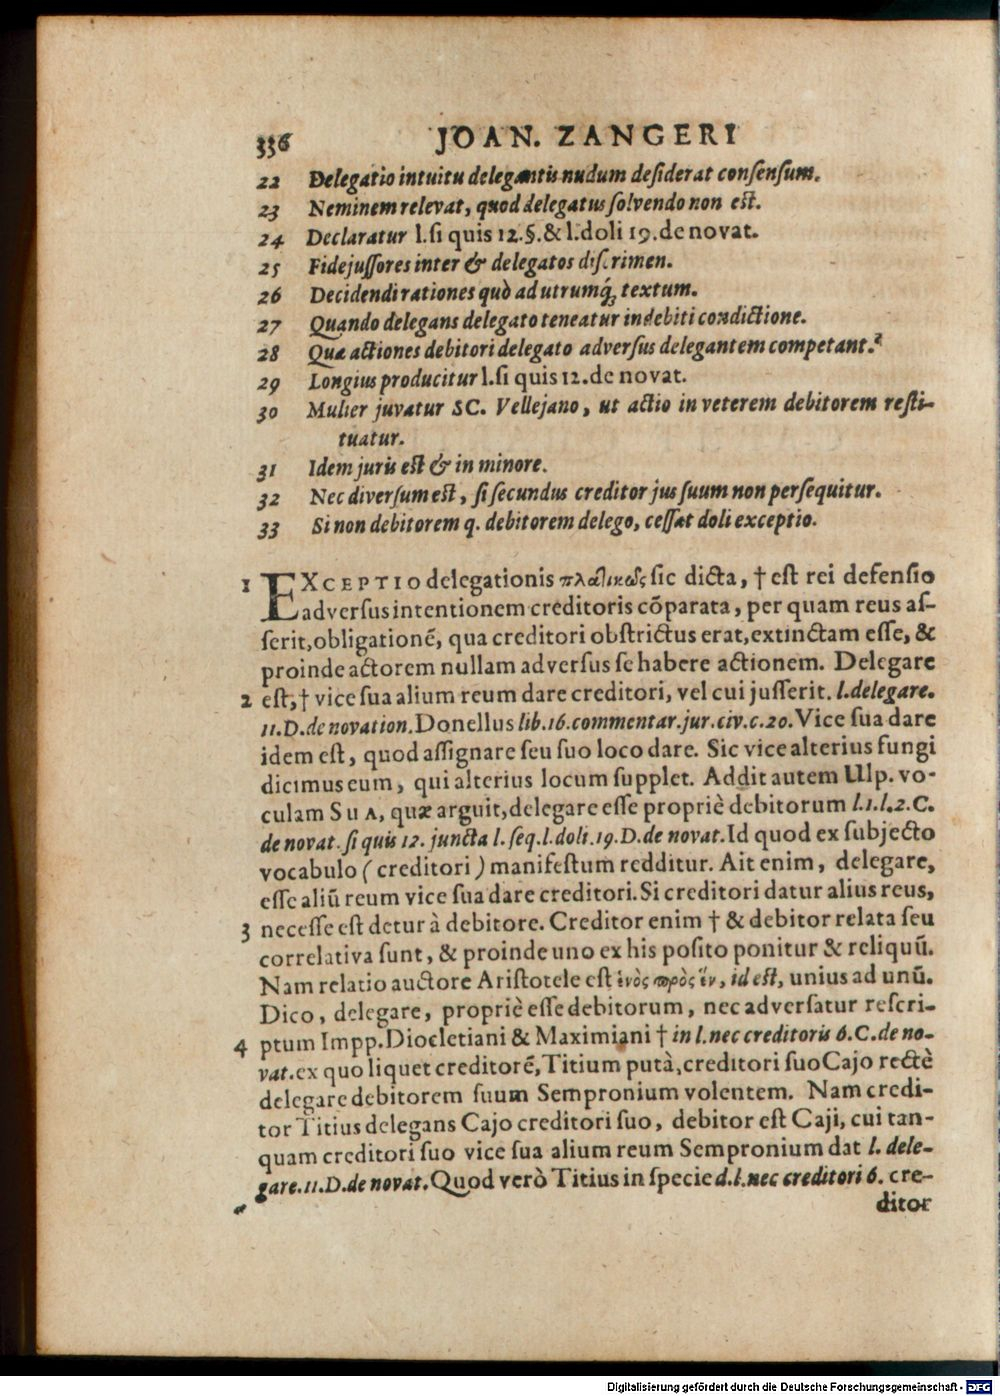 336 JOAN. ZANGERI
22 Delegatio intuitu delegantis nudum desiderat consensum.
23 Neminem relevat, quod delegatus solvendo non est.
24 Declaratur l.si quis 12.§.& l.doli 19.de novat.
25 Fidejussores inter & delegatos discrimen.
26 Decidendi rationes quò ad utrumq́; textum.
27 Quando delegans delegato teneatur indebiti condictione.
28 Quæ actiones debitori delegato adversus delegantem competant.
29 Longius producitur l.si quis 12.de novat.
30 Mulier juvatur SC. Vellejano, ut actio in veterem debitorem resti-
tuatur.
31 Idem juris est & in minore.
32 Nec diversum est, si secundus creditor jus suum non persequitur.
33 Si non debitorem q. debitorem delego, cessat doli exceptio.
1 EXCEPTIO delegationis πλατικῶς sic dicta, † est rei defensio
adversus intentionem creditoris cōparata, per quam reus as-
serit, obligationē, qua creditori obstrictus erat, extinctam esse, &
proinde actorem nullam adversus se habere actionem. Delegare
2 est, † vice sua alium reum dare creditori, vel cui jusserit. l.delegare.
11.D.de novation. Donellus lib.16.commentar.jur.civ.c.20. Vice sua dare
idem est, quod assignare seu suo loco dare. Sic vice alterius fungi
dicimus eum, qui alterius locum supplet. Addit autem Ulp. vo-
culam SUA, quæ arguit, delegare esse propriè debitorum l.1.l.2.C.
de novat. si quis 12. juncta l. seq.l.doli.19.D.de novat. Id quod ex subjecto
vocabulo ( creditori ) manifestum redditur. Ait enim, delegare,
esse aliū reum vice sua dare creditori. Si creditori datur alius reus,
3 necesse est detur à debitore. Creditor enim † & debitor relata seu
correlativa sunt, & proinde uno ex his posito ponitur & reliquū.
Nam relatio auctore Aristotele est ἑνὸς πρὸς ἕν, id est, unius ad unū.
Dico, delegare, propriè esse debitorum, nec adversatur rescri-
4 ptum Impp. Diocletiani & Maximiani † in l.nec creditoris 6.C.de no-
vat. ex quo liquet creditorē, Titium putà, creditori suo Cajo rectè
delegare debitorem suum Sempronium volentem. Nam credi-
tor Titius delegans Cajo creditori suo, debitor est Caji, cui tan-
quam creditori suo vice sua alium reum Sempronium dat l. dele-
gare.11.D.de novat. Quod verò Titius in specie d.l.nec creditori 6. cre-
ditor
Digitalisierung gefördert durch die Deutsche Forschungsgemeinschaft - DFG